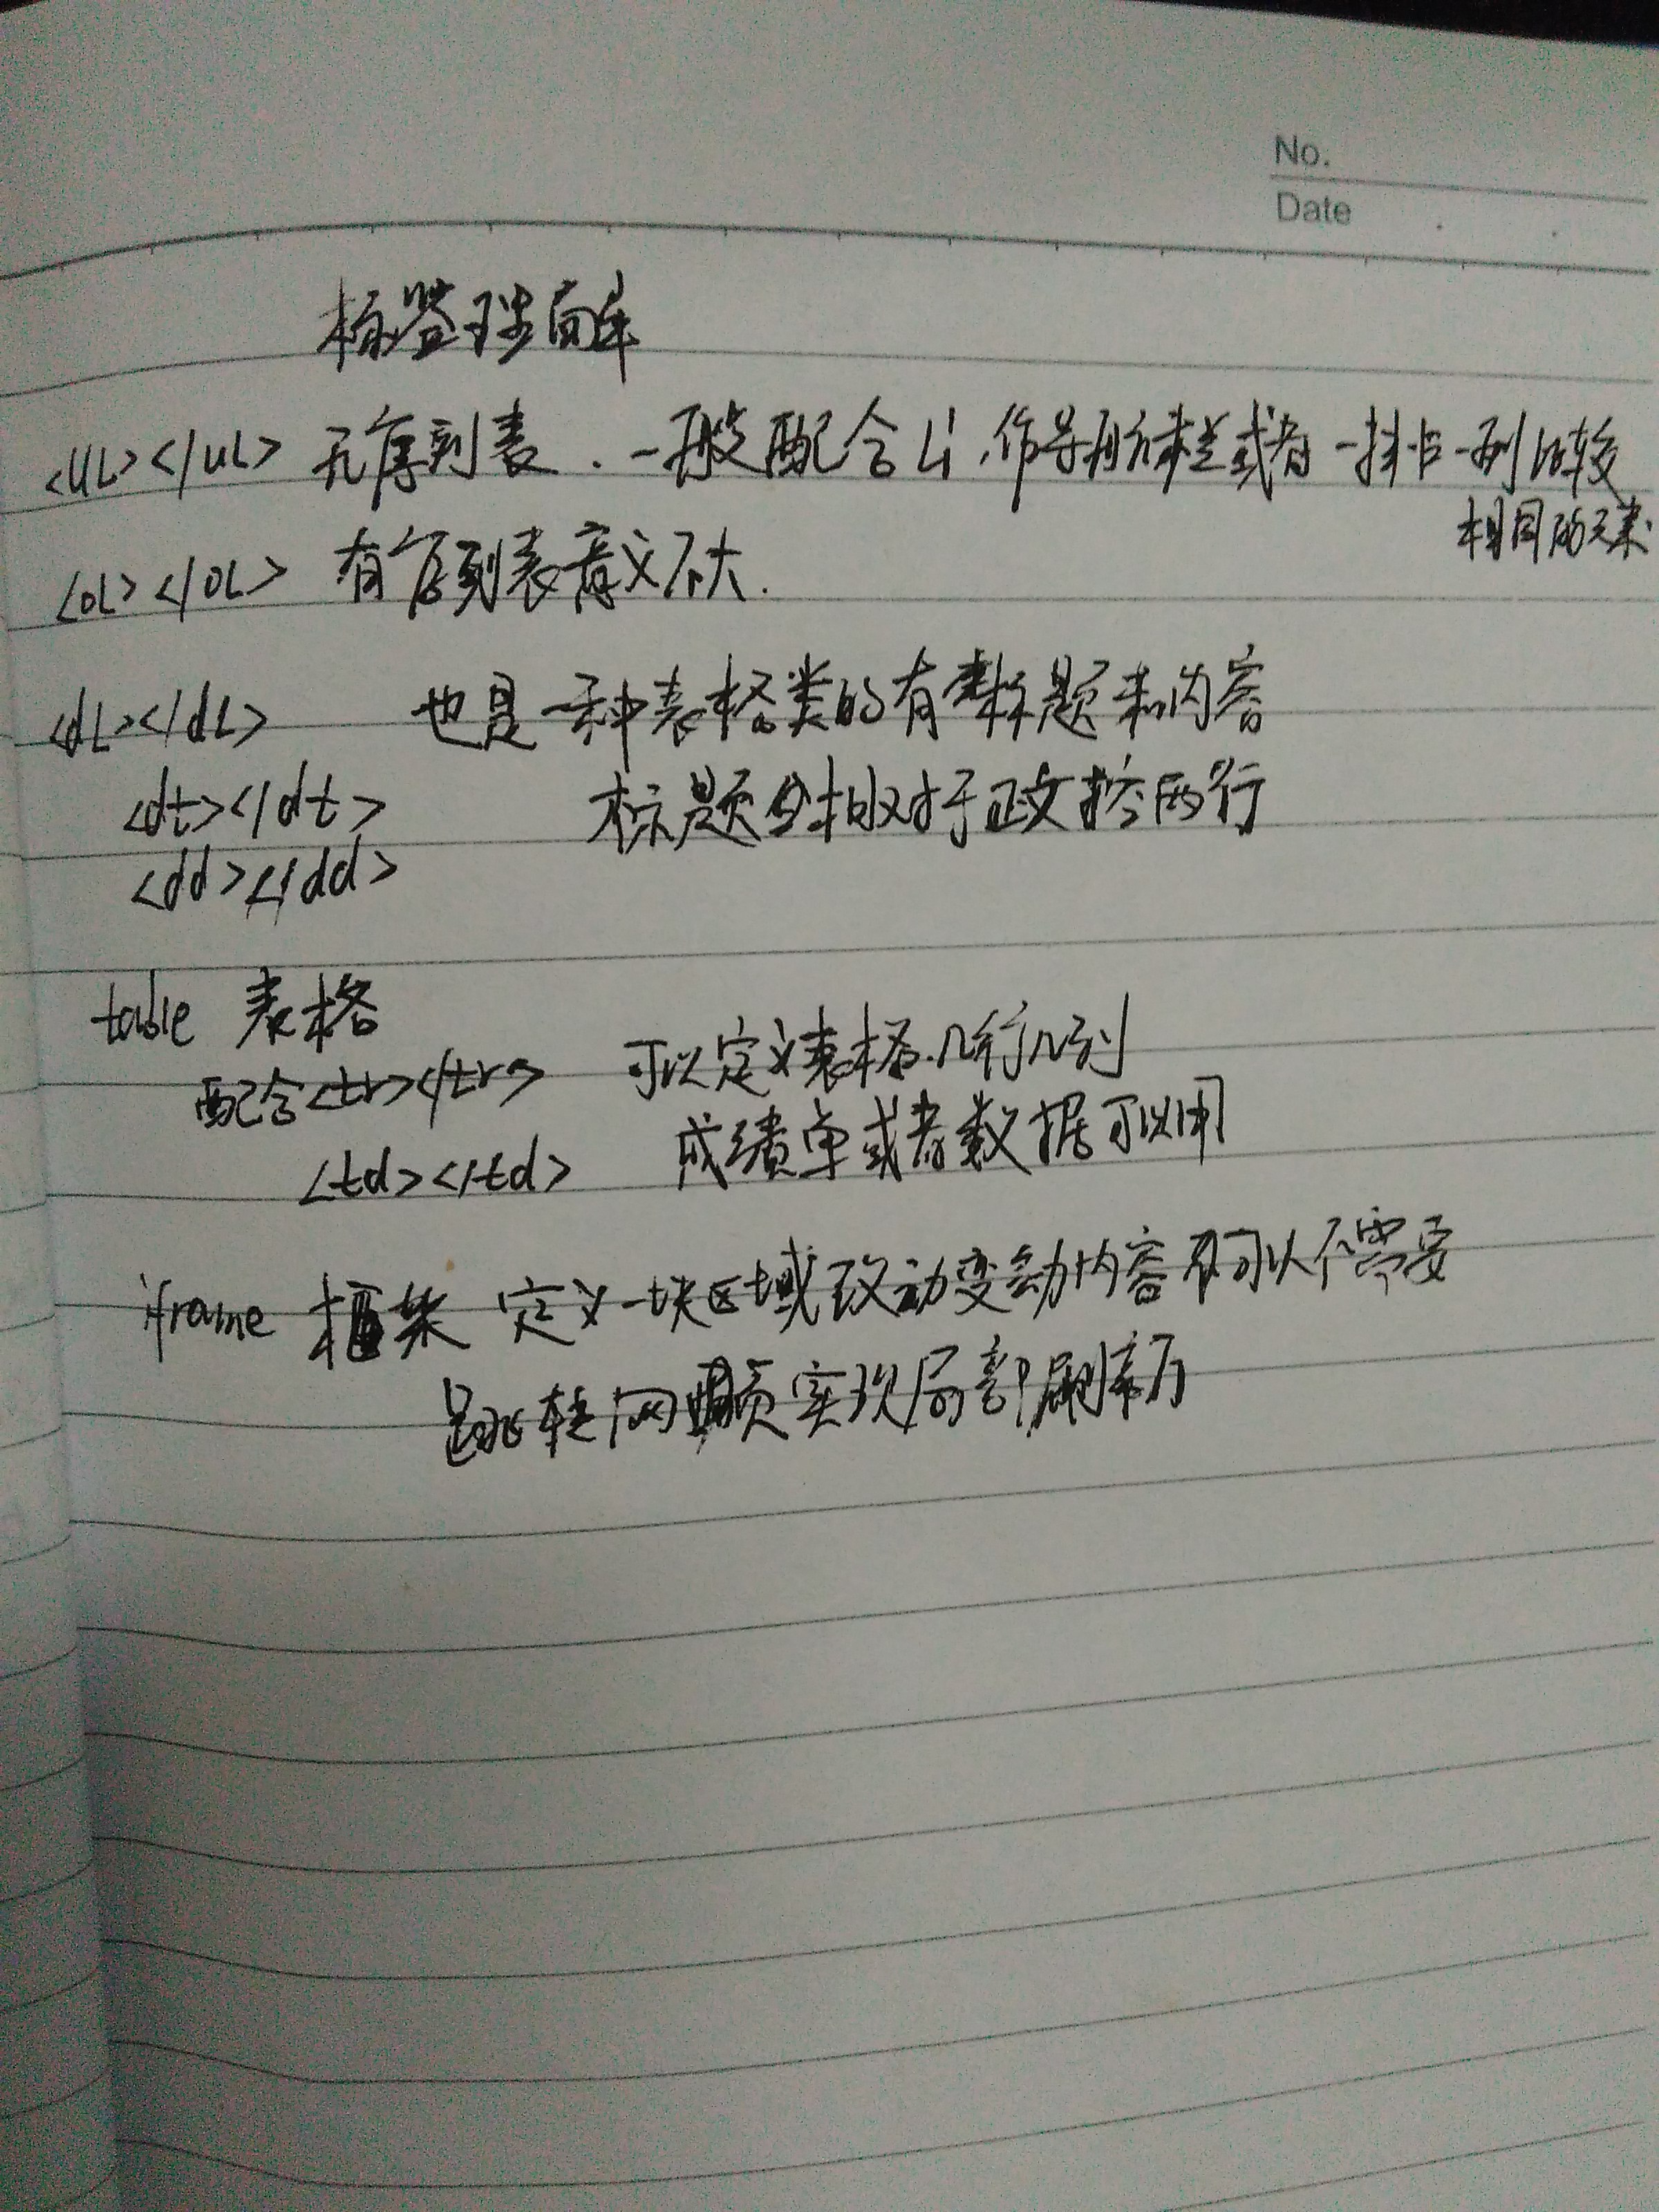 No.
Date
标签理解
<UL></UL> 无序列表．一般配合Li，作导航栏或者一排与一列比较
相同的元素.
<OL></OL> 有序列表意义不大.
<dL></dL> 也是一种表格类的有标题和内容
<dt></dt> 标题会相对于正文 两行
<dd></dd>
table 表格
配合<tr></tr> 可以定义表格.几行几列
<td></td> 成绩单或者数据可以用
iframe 框架 定义一块区域改动变动内容可以不需要
跳转网页实现局部刷新